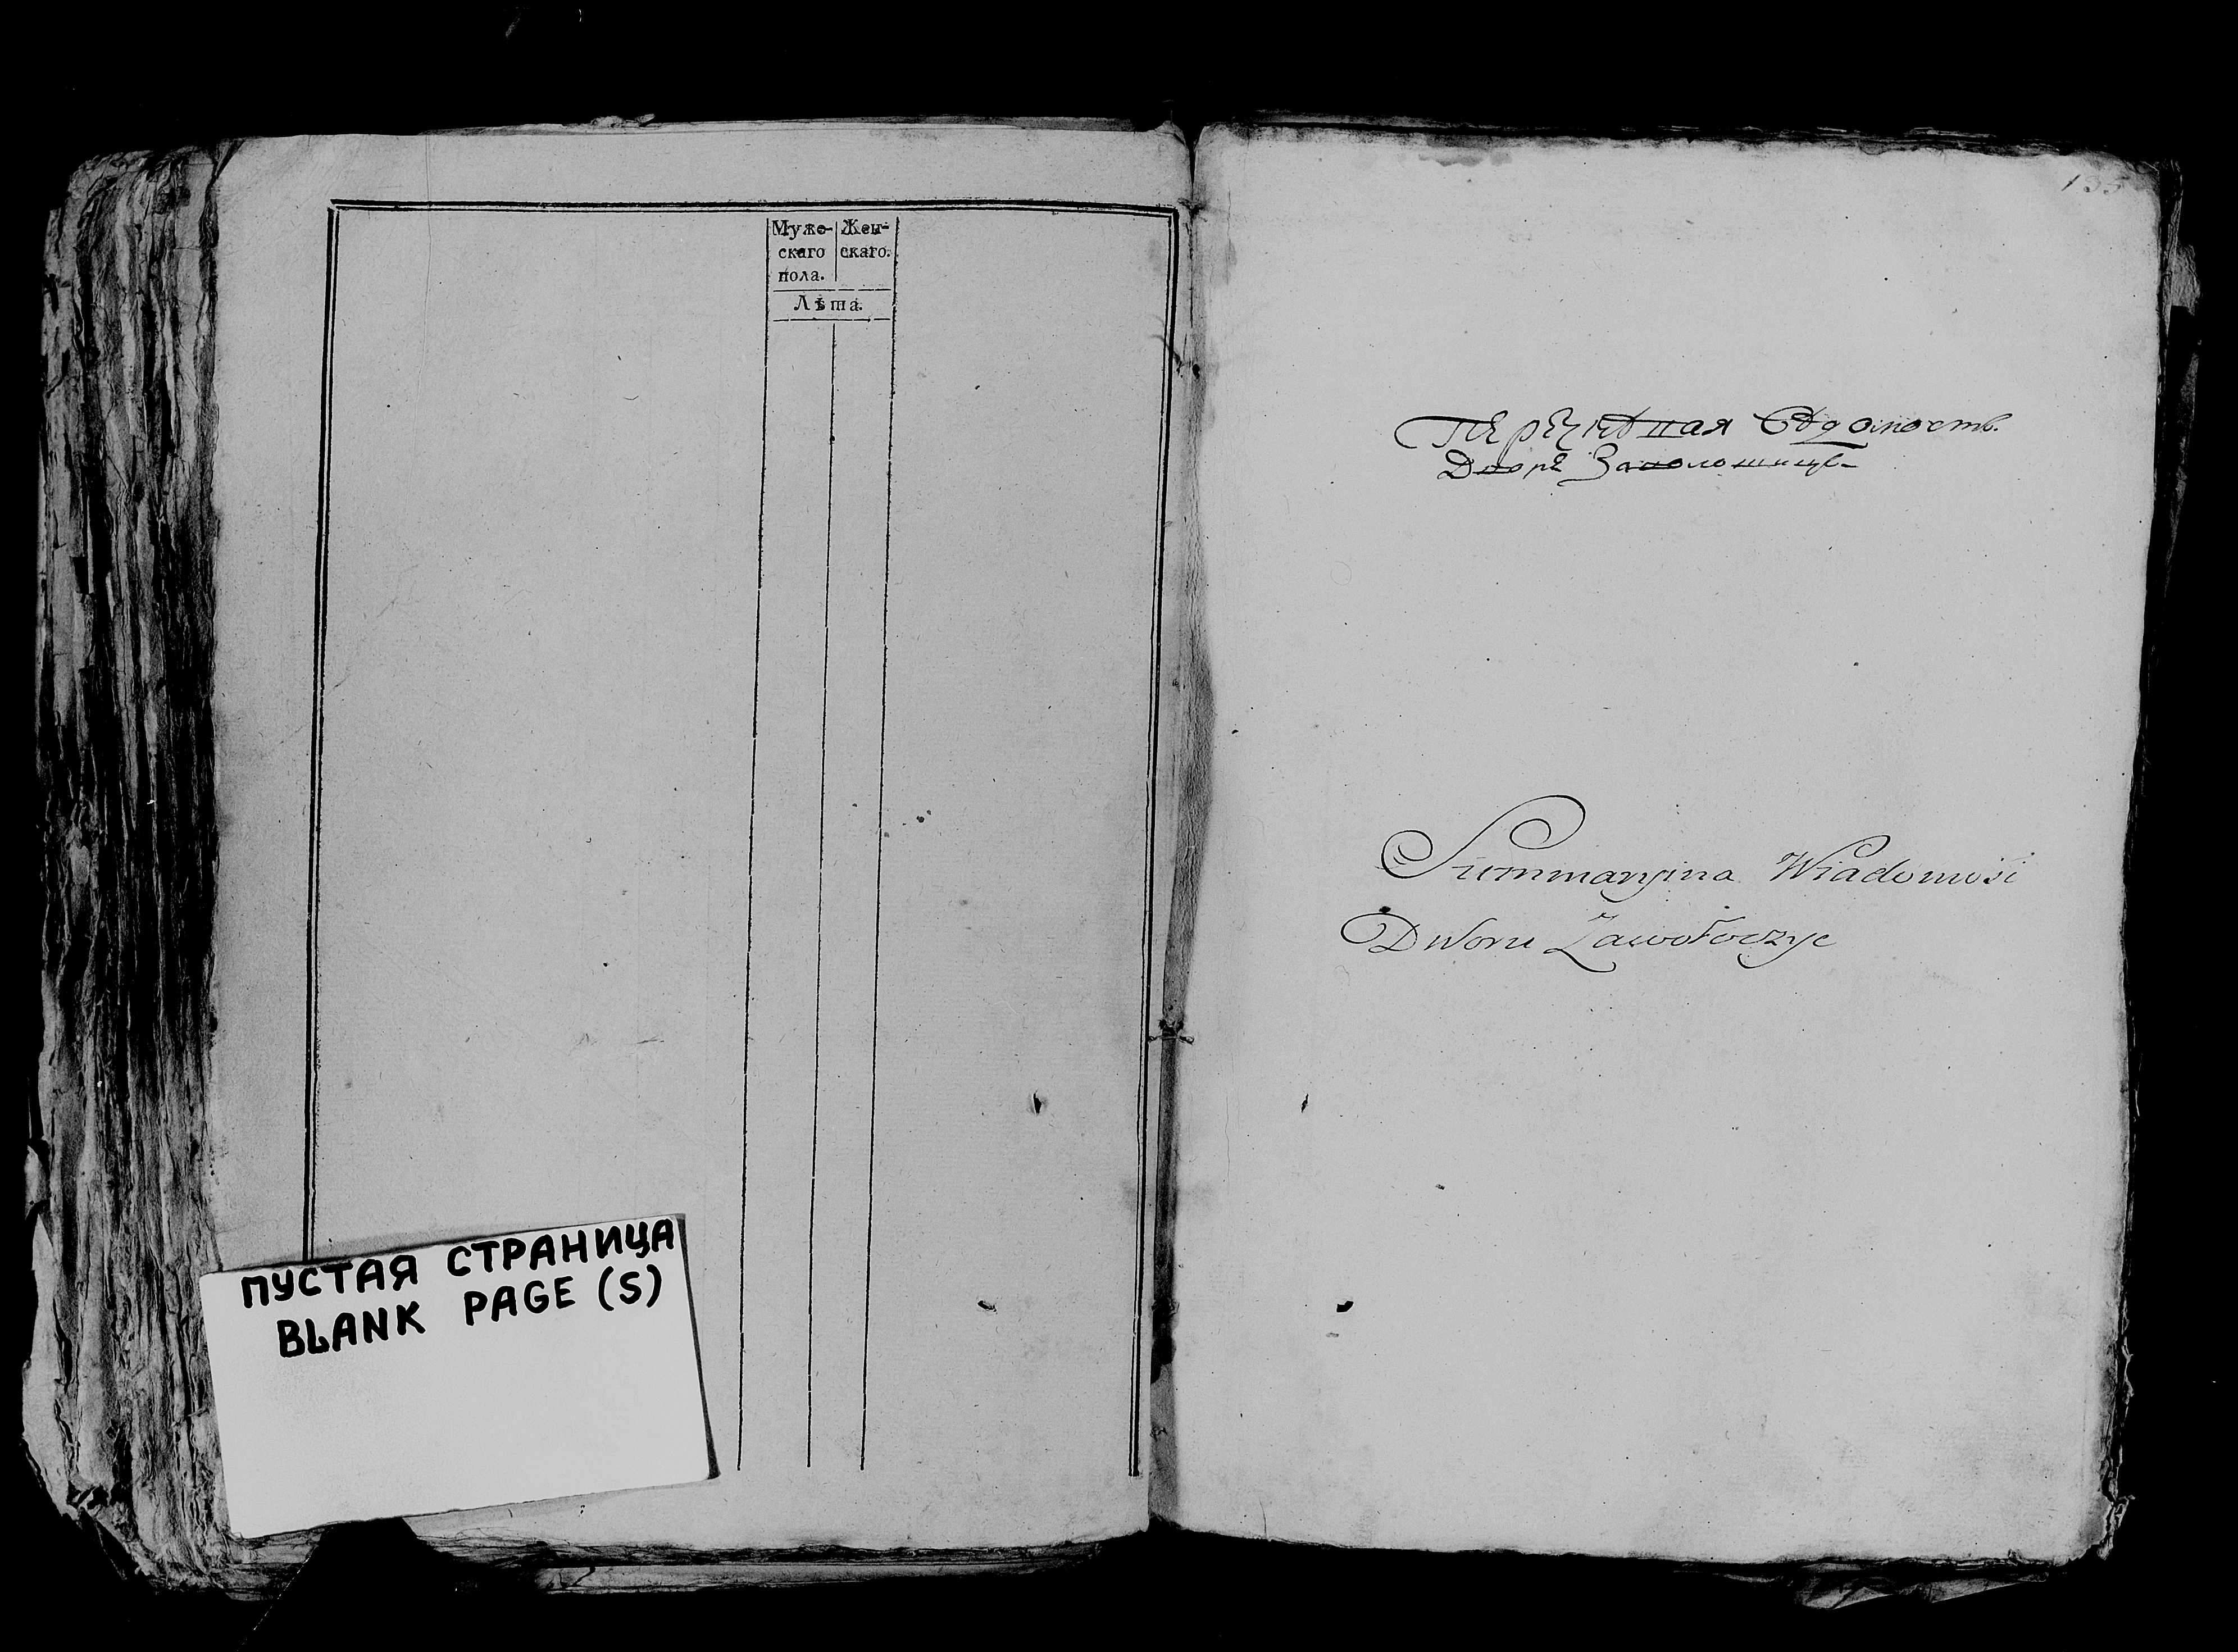 Муже-
скаго
пола.
Жен-
скаго.
Лѣта.
ПУСТАЯ СТРАНИЦА
BLANK PAGE (S)
135
Вѣдомость
Дворѣ
Summaryina Wiadomość
Dworu Zawołoczyc